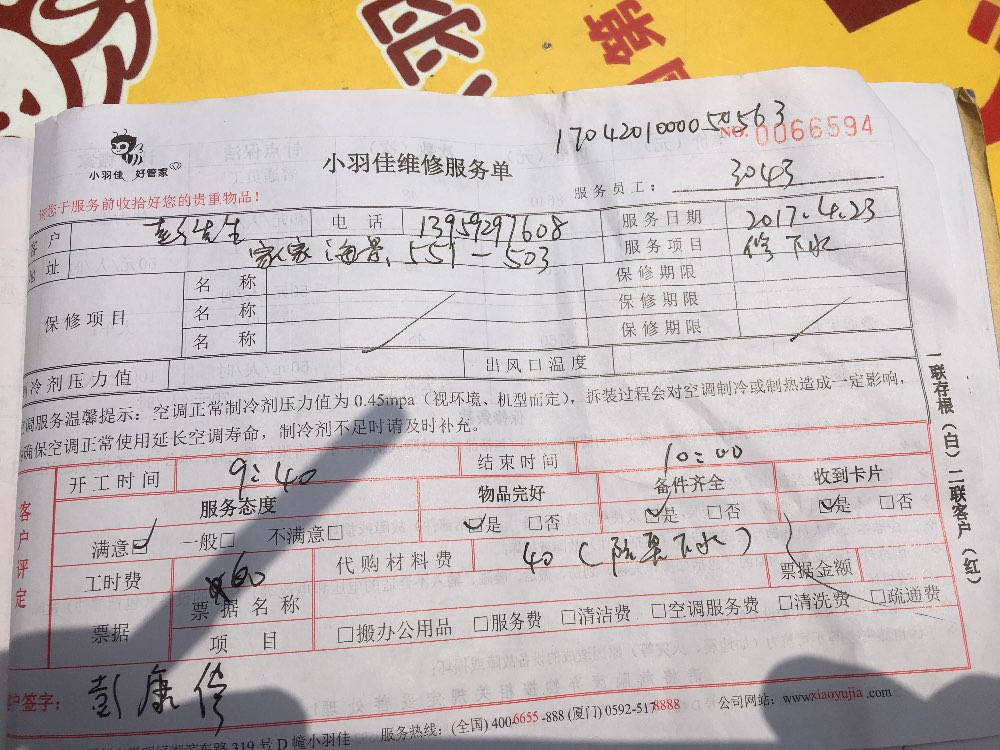 1704201000050563
NO. 0066594
小羽佳 好管家
小羽佳维修服务单
服务员工： 3043
请您于服务前收拾好您的贵重物品！
客户 彭先生 电话 13959297608 服务日期 2017.4.23
地址 家家海景 551-503 服务项目 修下水
保修项目 名称 保修期限
名称 保修期限
名称 保修期限
制冷剂压力值 出风口温度
空调服务温馨提示：空调正常制冷剂压力值为0.45mpa（视环境、机型而定），拆装过程会对空调制冷或制热造成一定影响，
确保空调正常使用延长空调寿命，制冷剂不足时请及时补充。
一联存根（白）二联客户（红）
客户评定
开工时间 9:40 结束时间 10:00
服务态度 物品完好 备件齐全 收到卡片
满意☑ 一般□ 不满意□ ☑是 □否 ☑是 □否 ☑是 □否
工时费 60 代购材料费 40（防臭下水） 票据金额
票据 票据名称
项目 □搬办公用品 □服务费 □清洁费 □空调服务费 □清洗费 □疏通费
客户签字：彭康信
东路319号D幢小羽佳 服务热线：(全国) 4006655-888 (厦门) 0592-5178888 公司网站：www.xiaoyujia.com